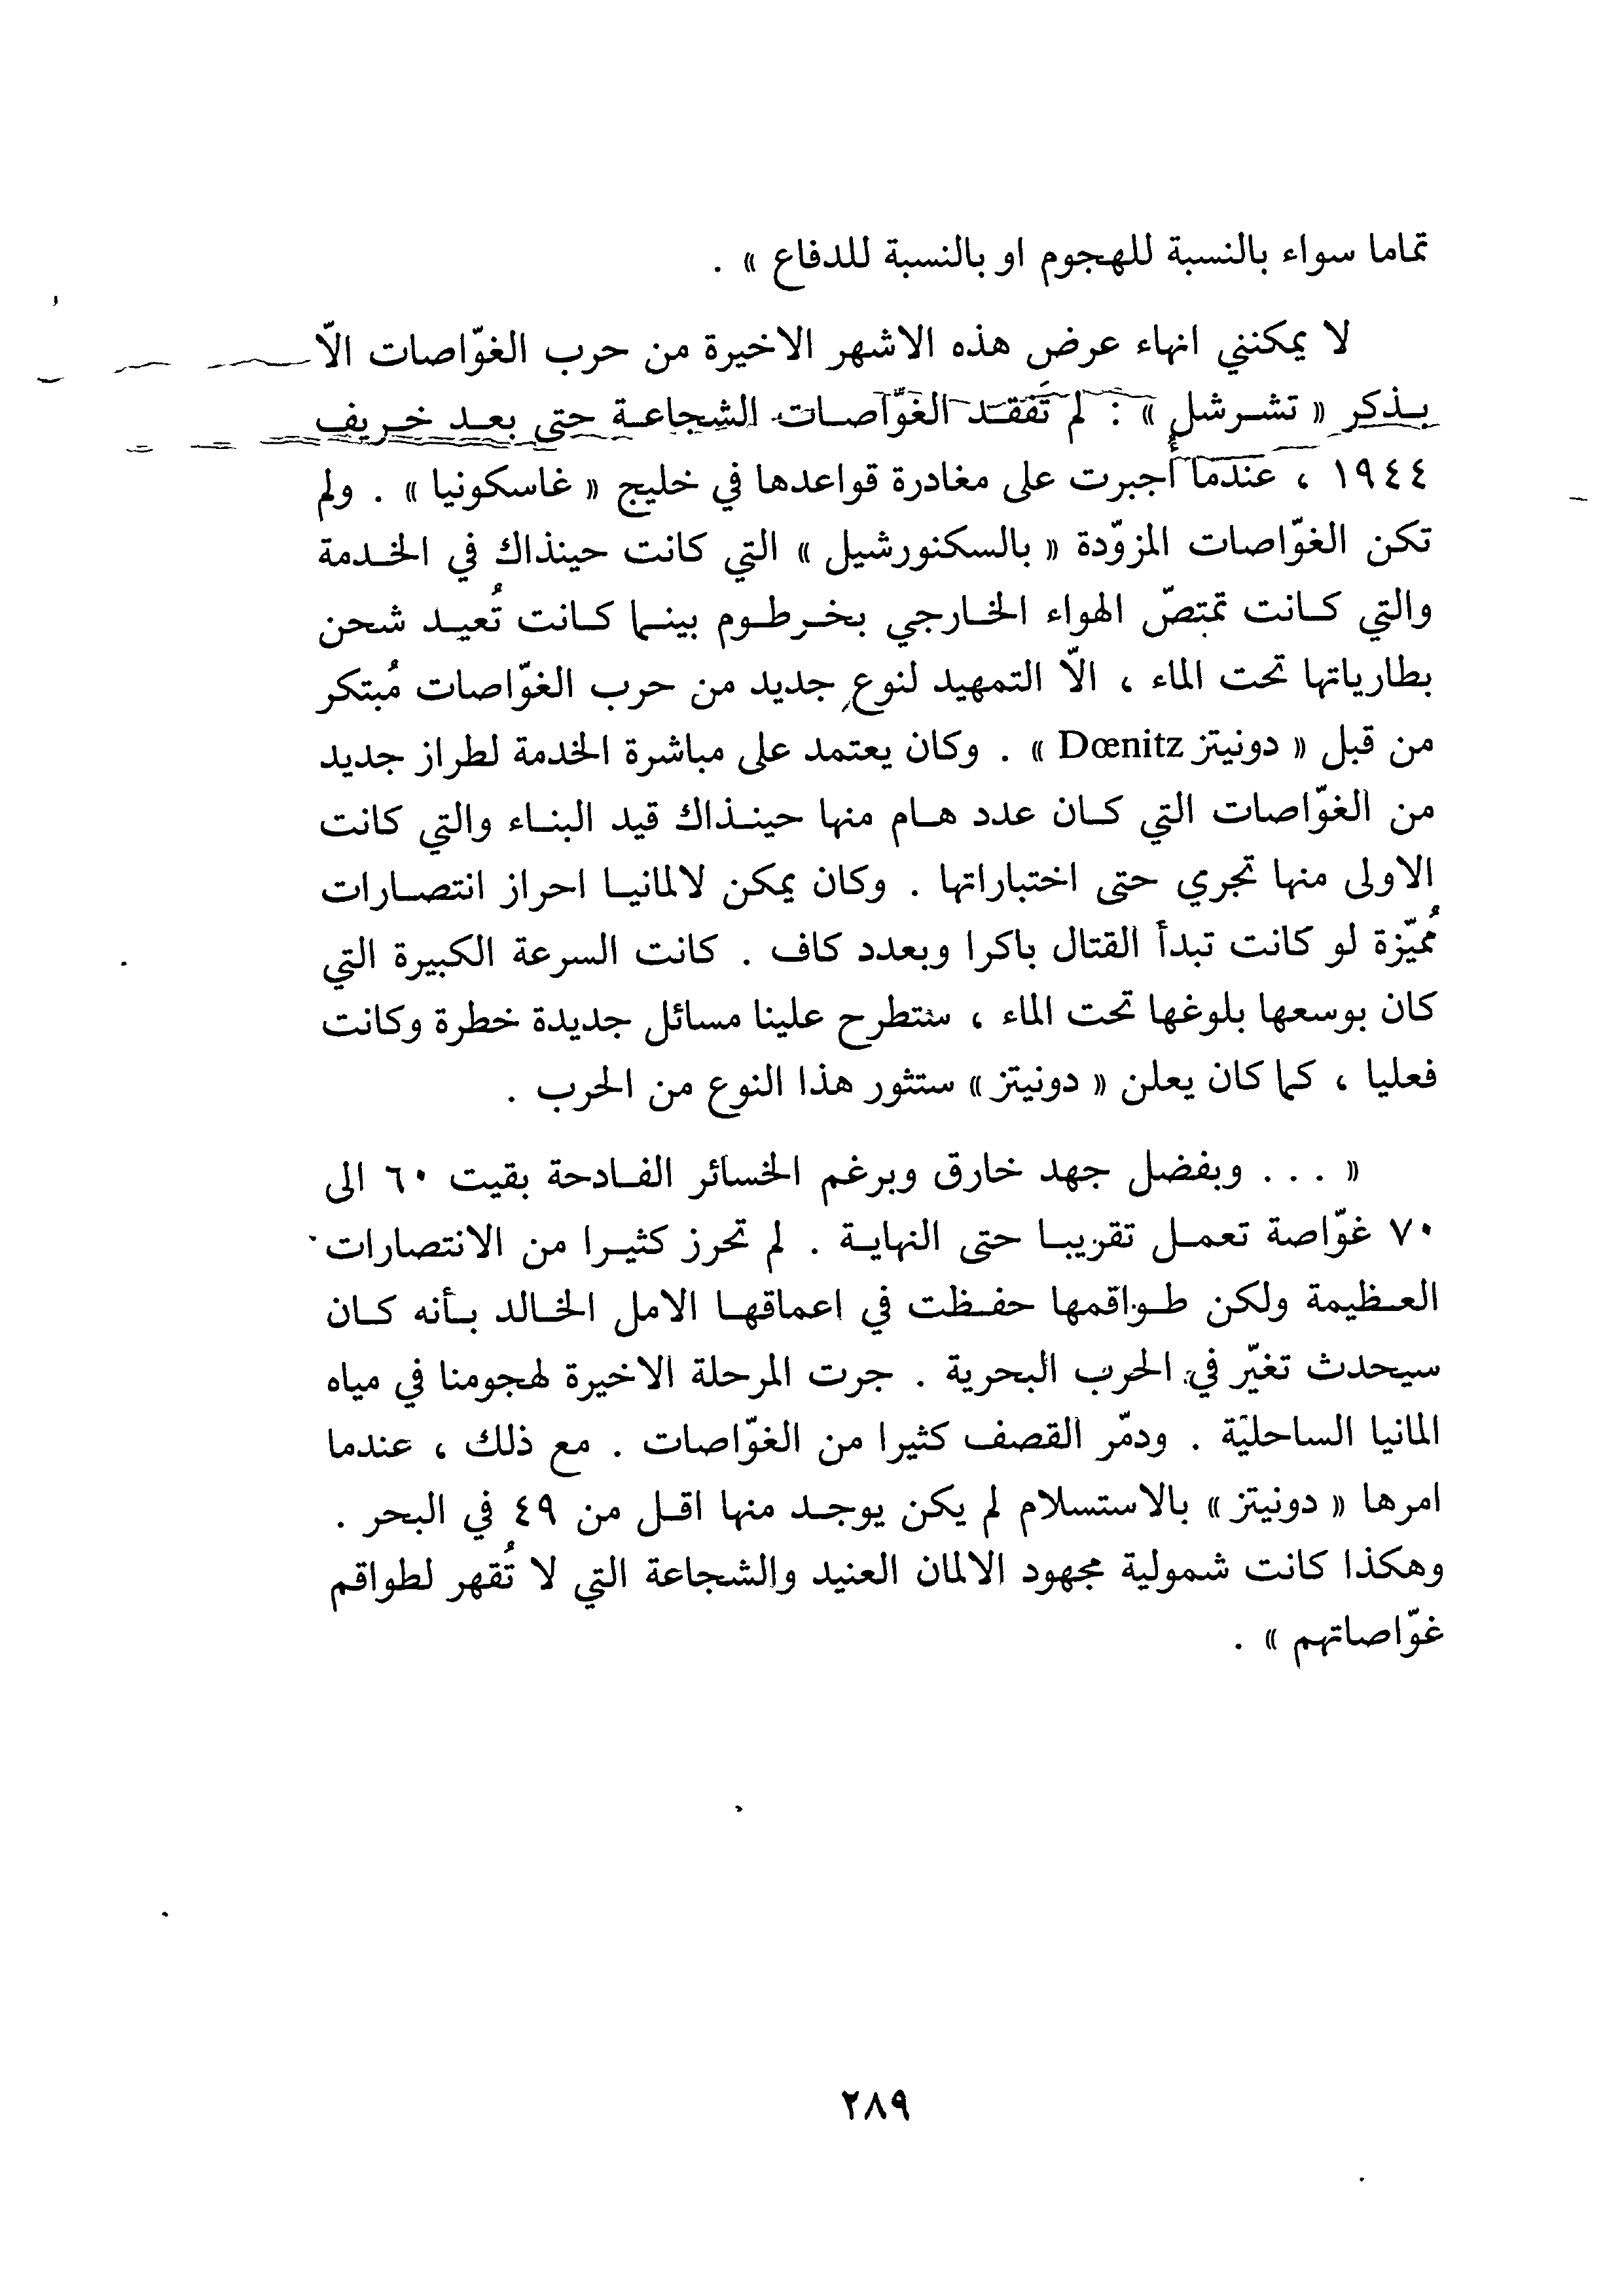 تماما سواء بالنسبة للهجوم او بالنسبة للدفاع » .
لا يمكنني انهاء عرض هذه الاشهر الاخيرة من حرب الغوّاصات الاّ
بـذكر « تشـرشل » : لم تَفقـد الغوّاصـات الشجاعـة حتى بعـد خـريف
١٩٤٤ ، عندما أُجبرت على مغادرة قواعدها في خليج « غاسكونيا » . ولم
تكن الغوّاصات المزوّدة « بالسكنورشيل » التي كانت حينذاك في الخـدمة
والتي كـانت تمتصّ الهواء الخـارجي بخـرطـوم بينـما كـانت تُعيـد شحن
بطارياتها تحت الماء ، الاّ التمهيد لنوع جديد من حرب الغوّاصات مُبتكر
من قبل « دونيتز Dœnitz » . وكان يعتمد على مباشرة الخدمة لطراز جديد
من الغوّاصات التي كـان عدد هـام منها حينـذاك قيد البنـاء والتي كانت
الاولى منها تجري حتى اختباراتها . وكان يمكن لالمانيـا احراز انتصـارات
مُميّزة لو كانت تبدأ القتال باكرا وبعدد كاف . كانت السرعة الكبيرة التي
كان بوسعها بلوغها تحت الماء ، ستطرح علينا مسائل جديدة خطرة وكانت
فعليا ، كما كان يعلن « دونيتز » ستثور هذا النوع من الحرب .
« . . . وبفضل جهد خارق وبرغم الخسائر الفـادحة بقيت ٦٠ الى
٧٠ غوّاصة تعمـل تقريبـا حتى النهايـة . لم تحرز كثيـرا من الانتصارات
العـظيمة ولكن طـواقمها حفـظت في اعماقهـا الامل الخـالد بـأنه كـان
سيحدث تغيّر في الحرب البحرية . جرت المرحلة الاخيرة لهجومنا في مياه
المانيا الساحليّة . ودمّر القصف كثيرا من الغوّاصات . مع ذلك ، عندما
امرها « دونيتز » بالاستسلام لم يكن يوجـد منها اقـل من ٤٩ في البحر .
وهكذا كانت شمولية مجهود الالمان العنيد والشجاعة التي لا تُقهر لطواقم
غوّاصاتهم » .
٢٨٩